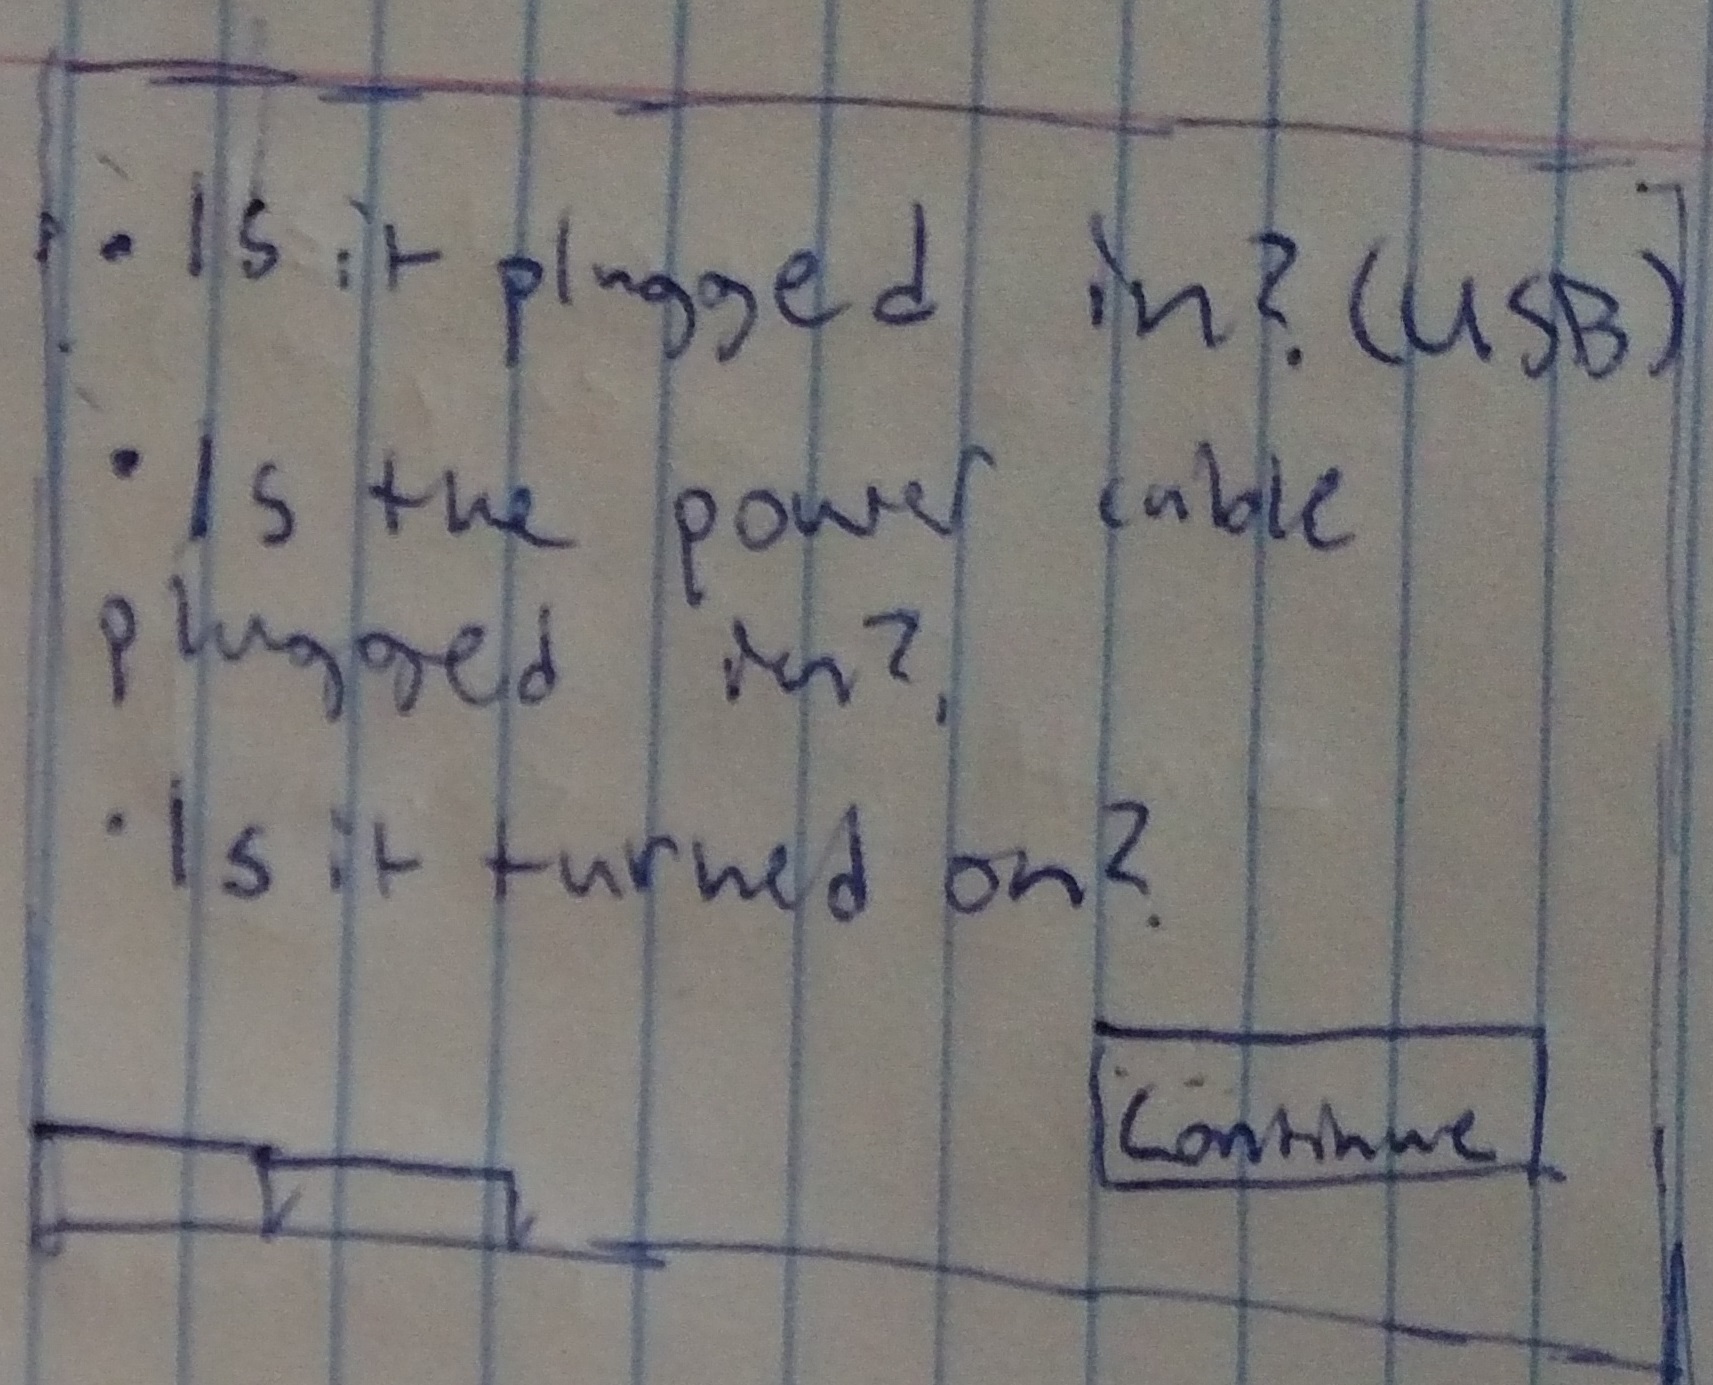 • Is it plugged in? (USB)
• Is the power cable
plugged in?
• Is it turned on?
Continue